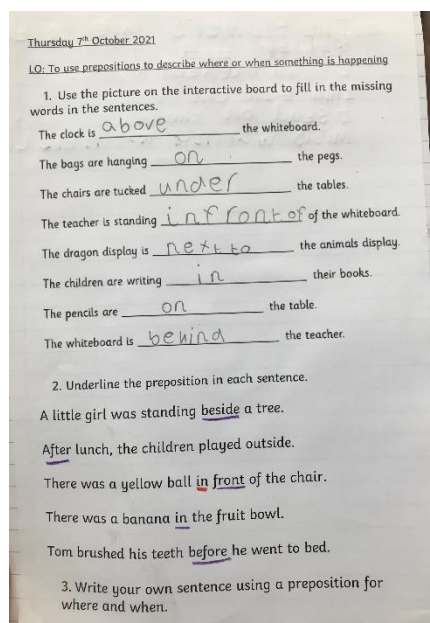 Thursday 7th October 2021
LO: To use prepositions to describe where or when something is happening
1. Use the picture on the interactive board to fill in the missing
words in the sentences.
The clock is above the whiteboard.
The bags are hanging on the pegs.
The chairs are tucked under the tables.
The teacher is standing in front of of the whiteboard.
The dragon display is next to the animals display.
The children are writing in their books.
The pencils are on the table.
The whiteboard is behind the teacher.
2. Underline the preposition in each sentence.
A little girl was standing beside a tree.
After lunch, the children played outside.
There was a yellow ball in front of the chair.
There was a banana in the fruit bowl.
Tom brushed his teeth before he went to bed.
3. Write your own sentence using a preposition for
where and when.